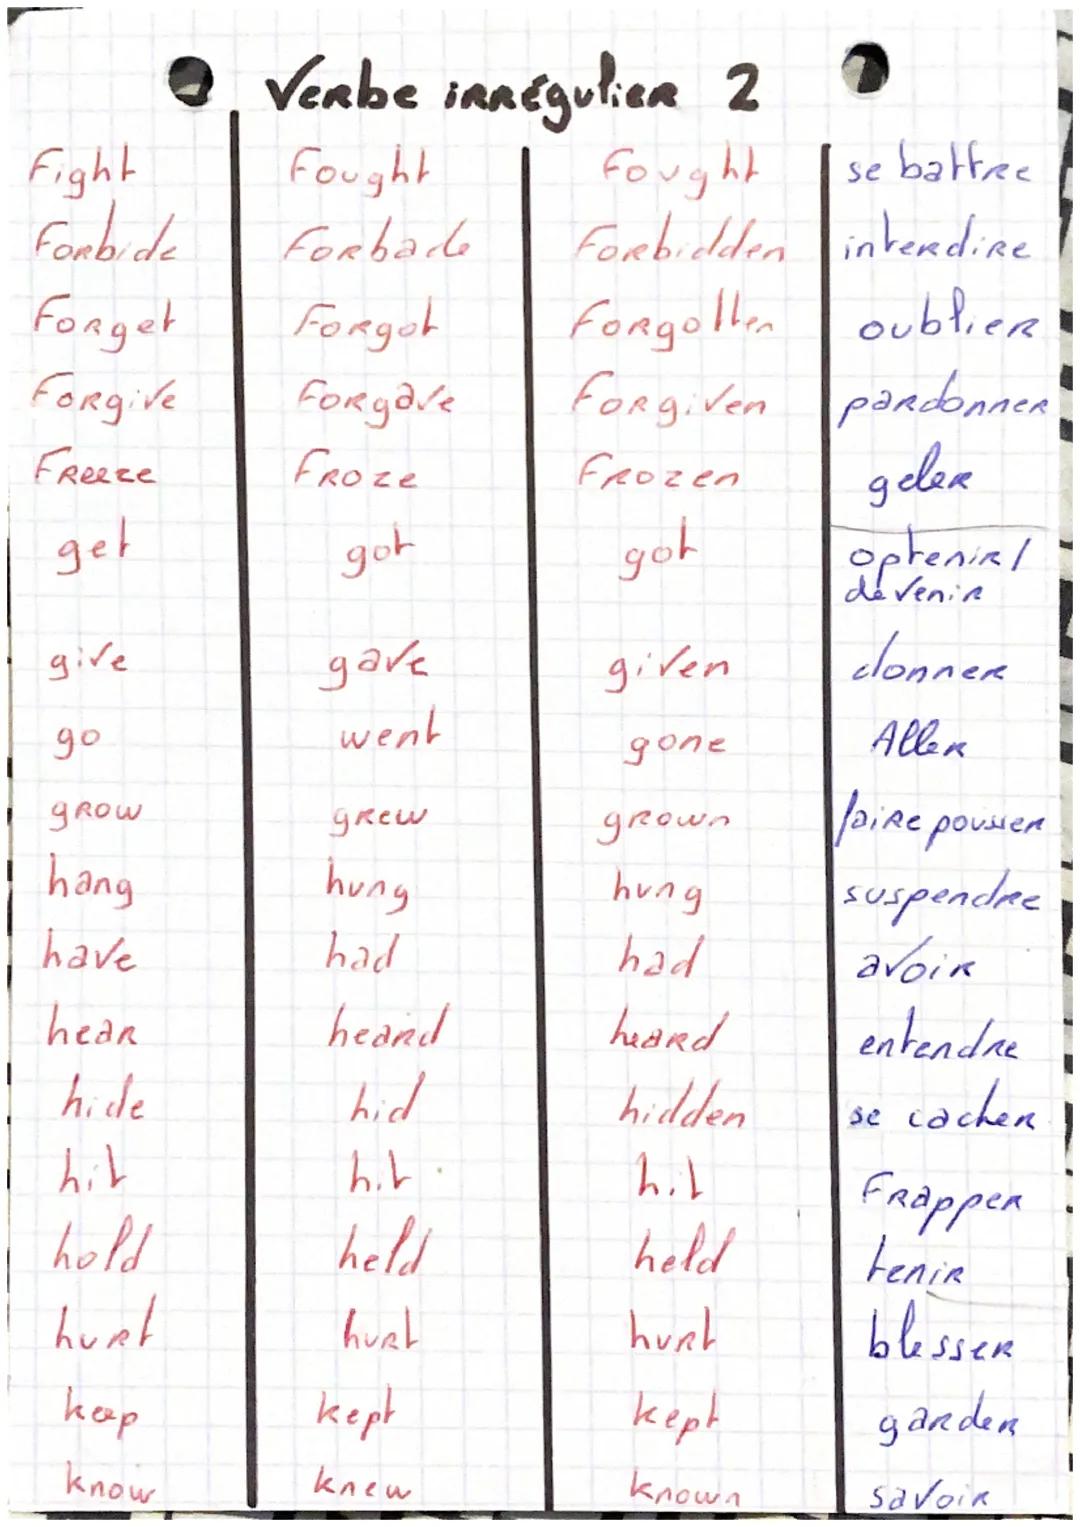 Verbe irrégulier 2
Fight Fought Fought se battre
Forbide Forbade Forbidden interdire
Forget Forgot Forgotten oublier
Forgive Forgave Forgiven pardonner
Freeze Froze Frozen geler
get got got optenir /
devenir
give gave given donner
go went gone Aller
grow grew grown faire pousser
hang hung hung suspendre
have had had avoir
hear heard heard entendre
hide hid hidden se cacher
hit hit hit Frapper
hold held held tenir
hurt hurt hurt blesser
keep kept kept garder
know knew known savoir